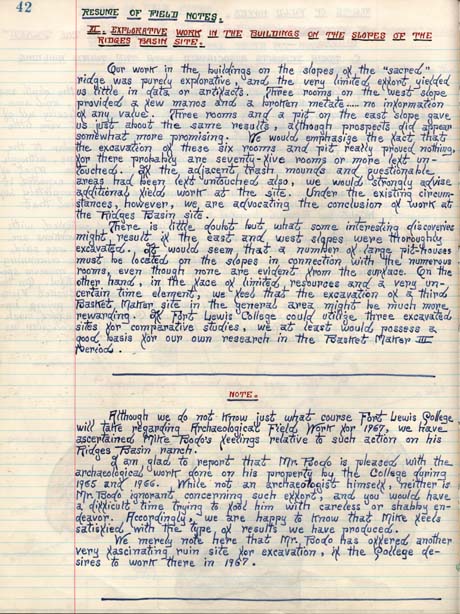 42
RESUME OF FIELD NOTES.
III. EXPLORATIVE WORK IN THE BUILDINGS ON THE SLOPES OF THE
RIDGES BASIN SITE.
Our work in the buildings on the slopes of the "sacred"
ridge was purely explorative, and the very limited effort yielded
us little in data or artifacts. Three rooms on the west slope
provided a few manos and a broken metate..... no information
of any value. Three rooms and a pit on the east slope gave
us just about the same results, although prospects did appear
somewhat more promising. We would emphasize the fact that
the excavation of these six rooms and pit really proved nothing,
for there probably are seventy-five rooms or more left un-
touched. If the adjacent trash mounds and questionable
areas had been left untouched also, we would strongly advise
additional field work at the site. Under the existing circum-
stances, however, we are advocating the conclusion of work at
the Ridges Basin site.
There is little doubt but what some interesting discoveries
might result if the east and west slopes were thoroughly
excavated. It would seem that a number of large pit-houses
must be located on the slopes in connection with the numerous
rooms, even though none are evident from the surface. On the
other hand, in the face of limited resources and a very un-
certain time element, we feel that the excavation of a third
Basket Maker site in the general area might be much more
rewarding. If Fort Lewis College could utilize three excavated
sites for comparative studies, we at least would possess a
good basis for our own research in the Basket Maker III
Period.
NOTE.
Although we do not know just what course Fort Lewis College
will take regarding Archaeological Field Work for 1967, we have
ascertained Mike Bodo's feelings relative to such action on his
Ridges Basin ranch.
I am glad to report that Mr. Bodo is pleased with the
archaeological work done on his property by the College during
1965 and 1966. While not an archaeologist himself, neither is
Mr. Bodo ignorant concerning such efforts, and you would have
a difficult time trying to fool him with careless or shabby en-
deavor. Accordingly, we are happy to know that Mike feels
satisfied with the type of results we have produced.
We merely note here that Mr. Bodo has offered another
very fascinating ruin site for excavation, if the College de-
sires to work there in 1967.